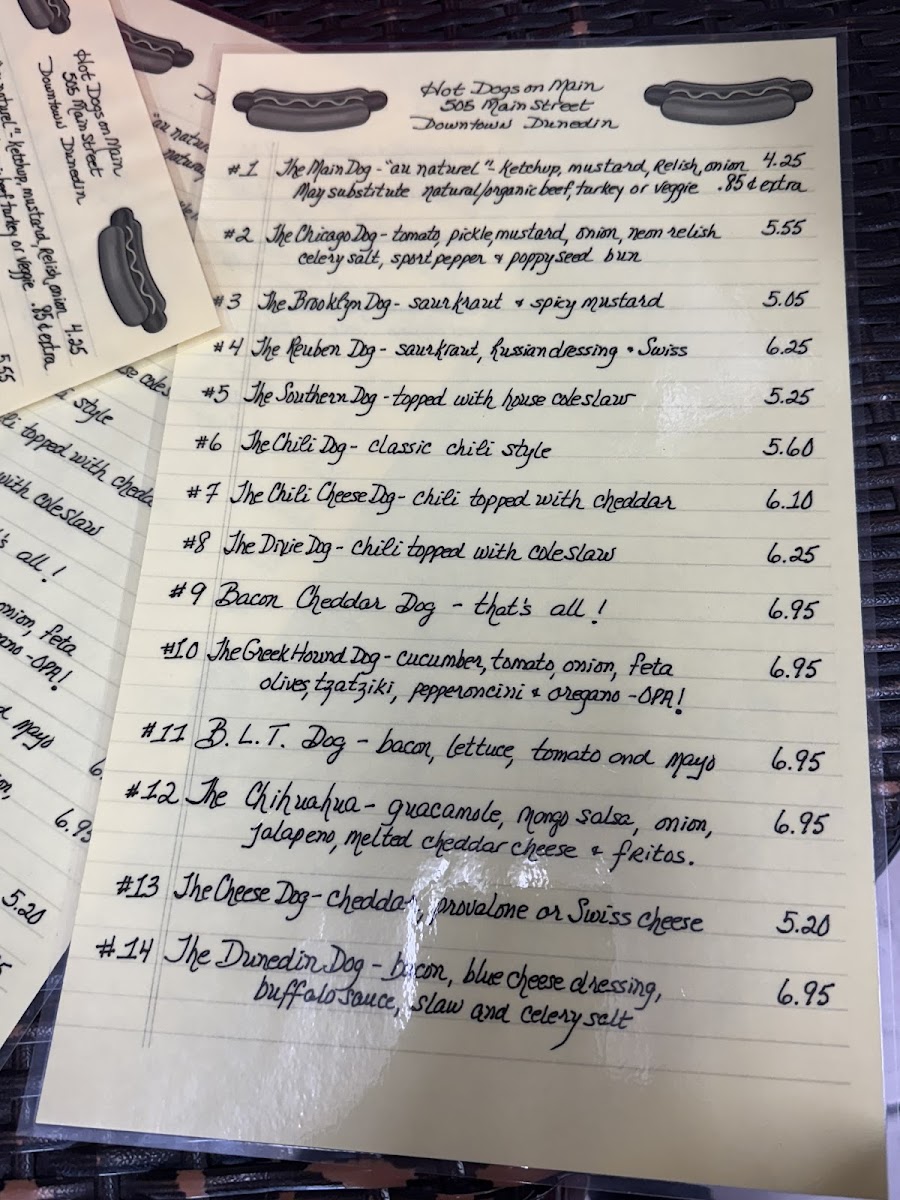 Hot Dogs on Main
505 Main Street
Downtown Dunedin
#1 The Main Dog - "au naturel" - Ketchup, mustard, Relish, onion 4.25
May substitute natural/organic beef, turkey or veggie .85¢ extra
#2 The Chicago Dog - tomato, pickle, mustard, onion, neon relish 5.55
celery salt, sport pepper & poppyseed bun
#3 The Brooklyn Dog - saurkraut & spicy mustard 5.05
#4 The Reuben Dog - saurkraut, Russian dressing & Swiss 6.25
#5 The Southern Dog - topped with house coleslaw 5.25
#6 The Chili Dog - classic chili style 5.60
#7 The Chili Cheese Dog - chili topped with cheddar 6.10
#8 The Dixie Dog - chili topped with coleslaw 6.25
#9 Bacon Cheddar Dog - that's all! 6.95
#10 The Greek Hound Dog - cucumber, tomato, onion, feta 6.95
olives, tzatziki, pepperoncini & oregano - OPA!
#11 B.L.T. Dog - bacon, lettuce, tomato and mayo 6.95
#12 The Chihuahua - guacamole, mango salsa, onion, 6.95
jalapeno, melted cheddar cheese & fritos.
#13 The Cheese Dog - cheddar, provalone or Swiss cheese 5.20
#14 The Dunedin Dog - bacon, blue cheese dressing, 6.95
buffalo sauce, slaw and celery salt
Hot Dogs on Main
505 Main Street
Downtown Dunedin
naturel" - Ketchup, mustard, Relish, onion 4.25
beef, turkey or veggie .85¢ extra
5.55
"au natur
style
topped with chedda
with coleslaw
all!
onion, feta
-OPA!
mayo
6.
6.95
5.20